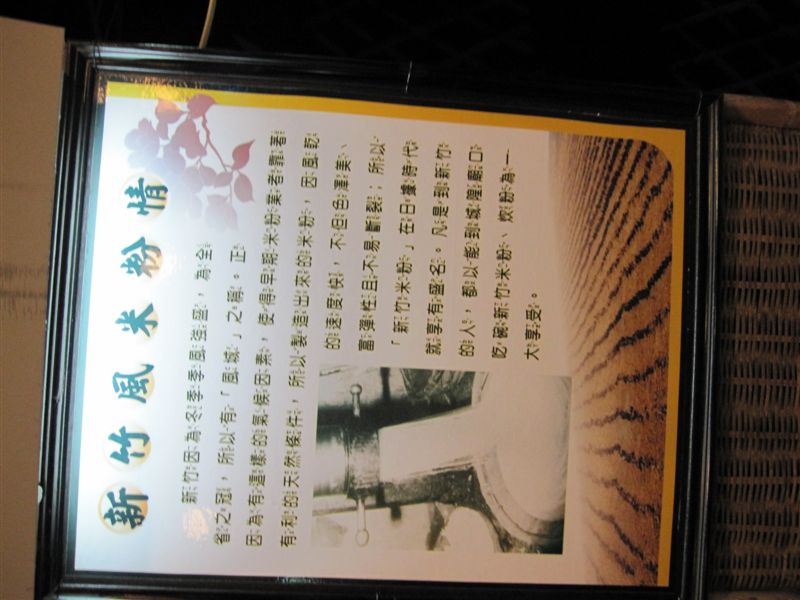 新竹風米粉情
新竹因為冬季季風強盛，為全
省之冠，所以有「風城」之稱。正
因為有這樣的氣候因素，使得早期米粉業者靠著
有利的天然條件，所以製造出來的米粉，因風乾
的速度快，不但色澤美、
富彈性且不易斷裂；所以
「新竹米粉」在日據時代
就享有盛名。凡是到新竹
的人，都以能到城隍廟口
吃碗新竹米粉、炊粉為一
大享受。